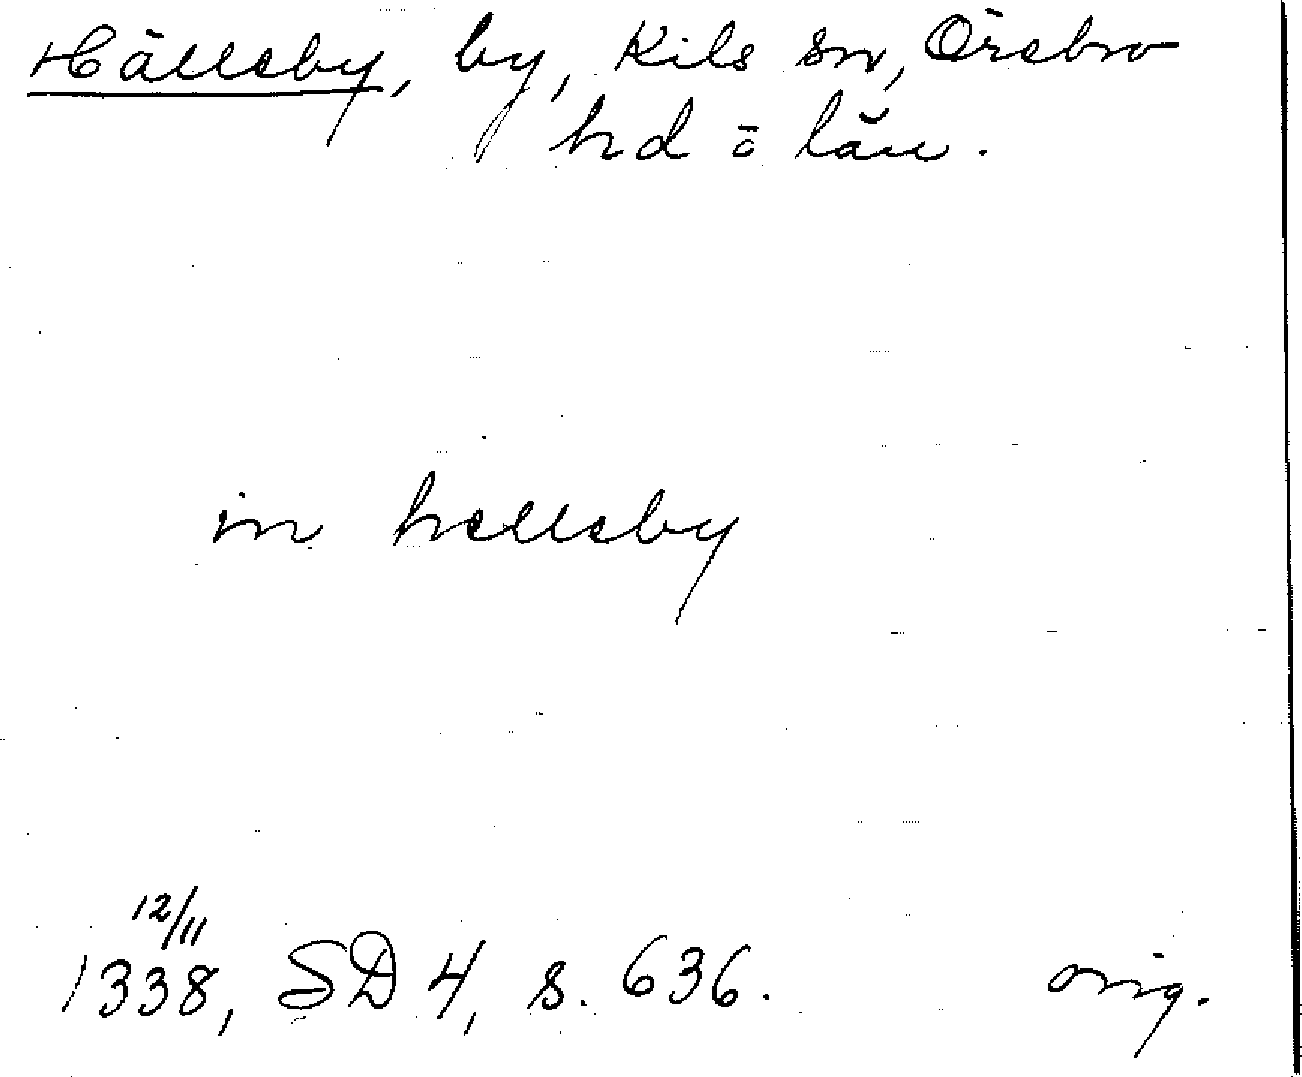 Hällsby, by, Kils sn, Örebro
hd o län.
in hellsby
12/11
1338, SD 4, s. 636. orig.